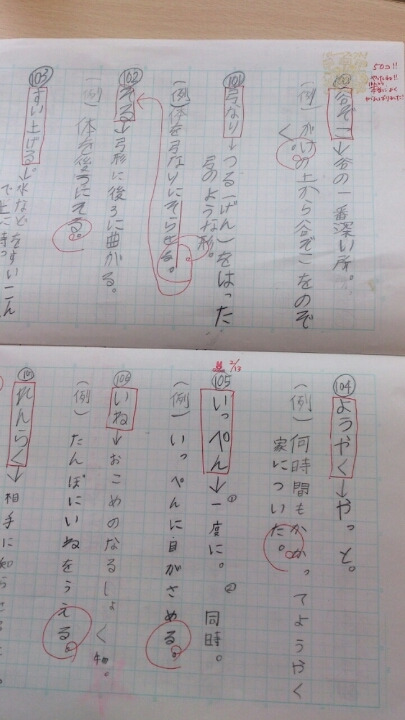 ⑩⓪ 谷ぞこ→谷の一番深い所。
(例)がけの上から谷ぞこをのぞ
く。
101 弓なり→つる(げん)をはった
弓のような形。
(例)体を弓なりにそらせる。
102 そる→弓形に後ろに曲がる。
(例)体を後ろにそる。
103 すい上げる→水などをすいこん
で上に持っ
104 ようやく→やっと。
(例)何時間もかかってようやく
家についた。
2/13
105 いっぺん→①一度に。②同時。
(例)いっぺんに目がさめる。
106 いね→おこめのなるしょく物。
(例)たんぼにいねをうえる。
れんらく→相手に知らせる